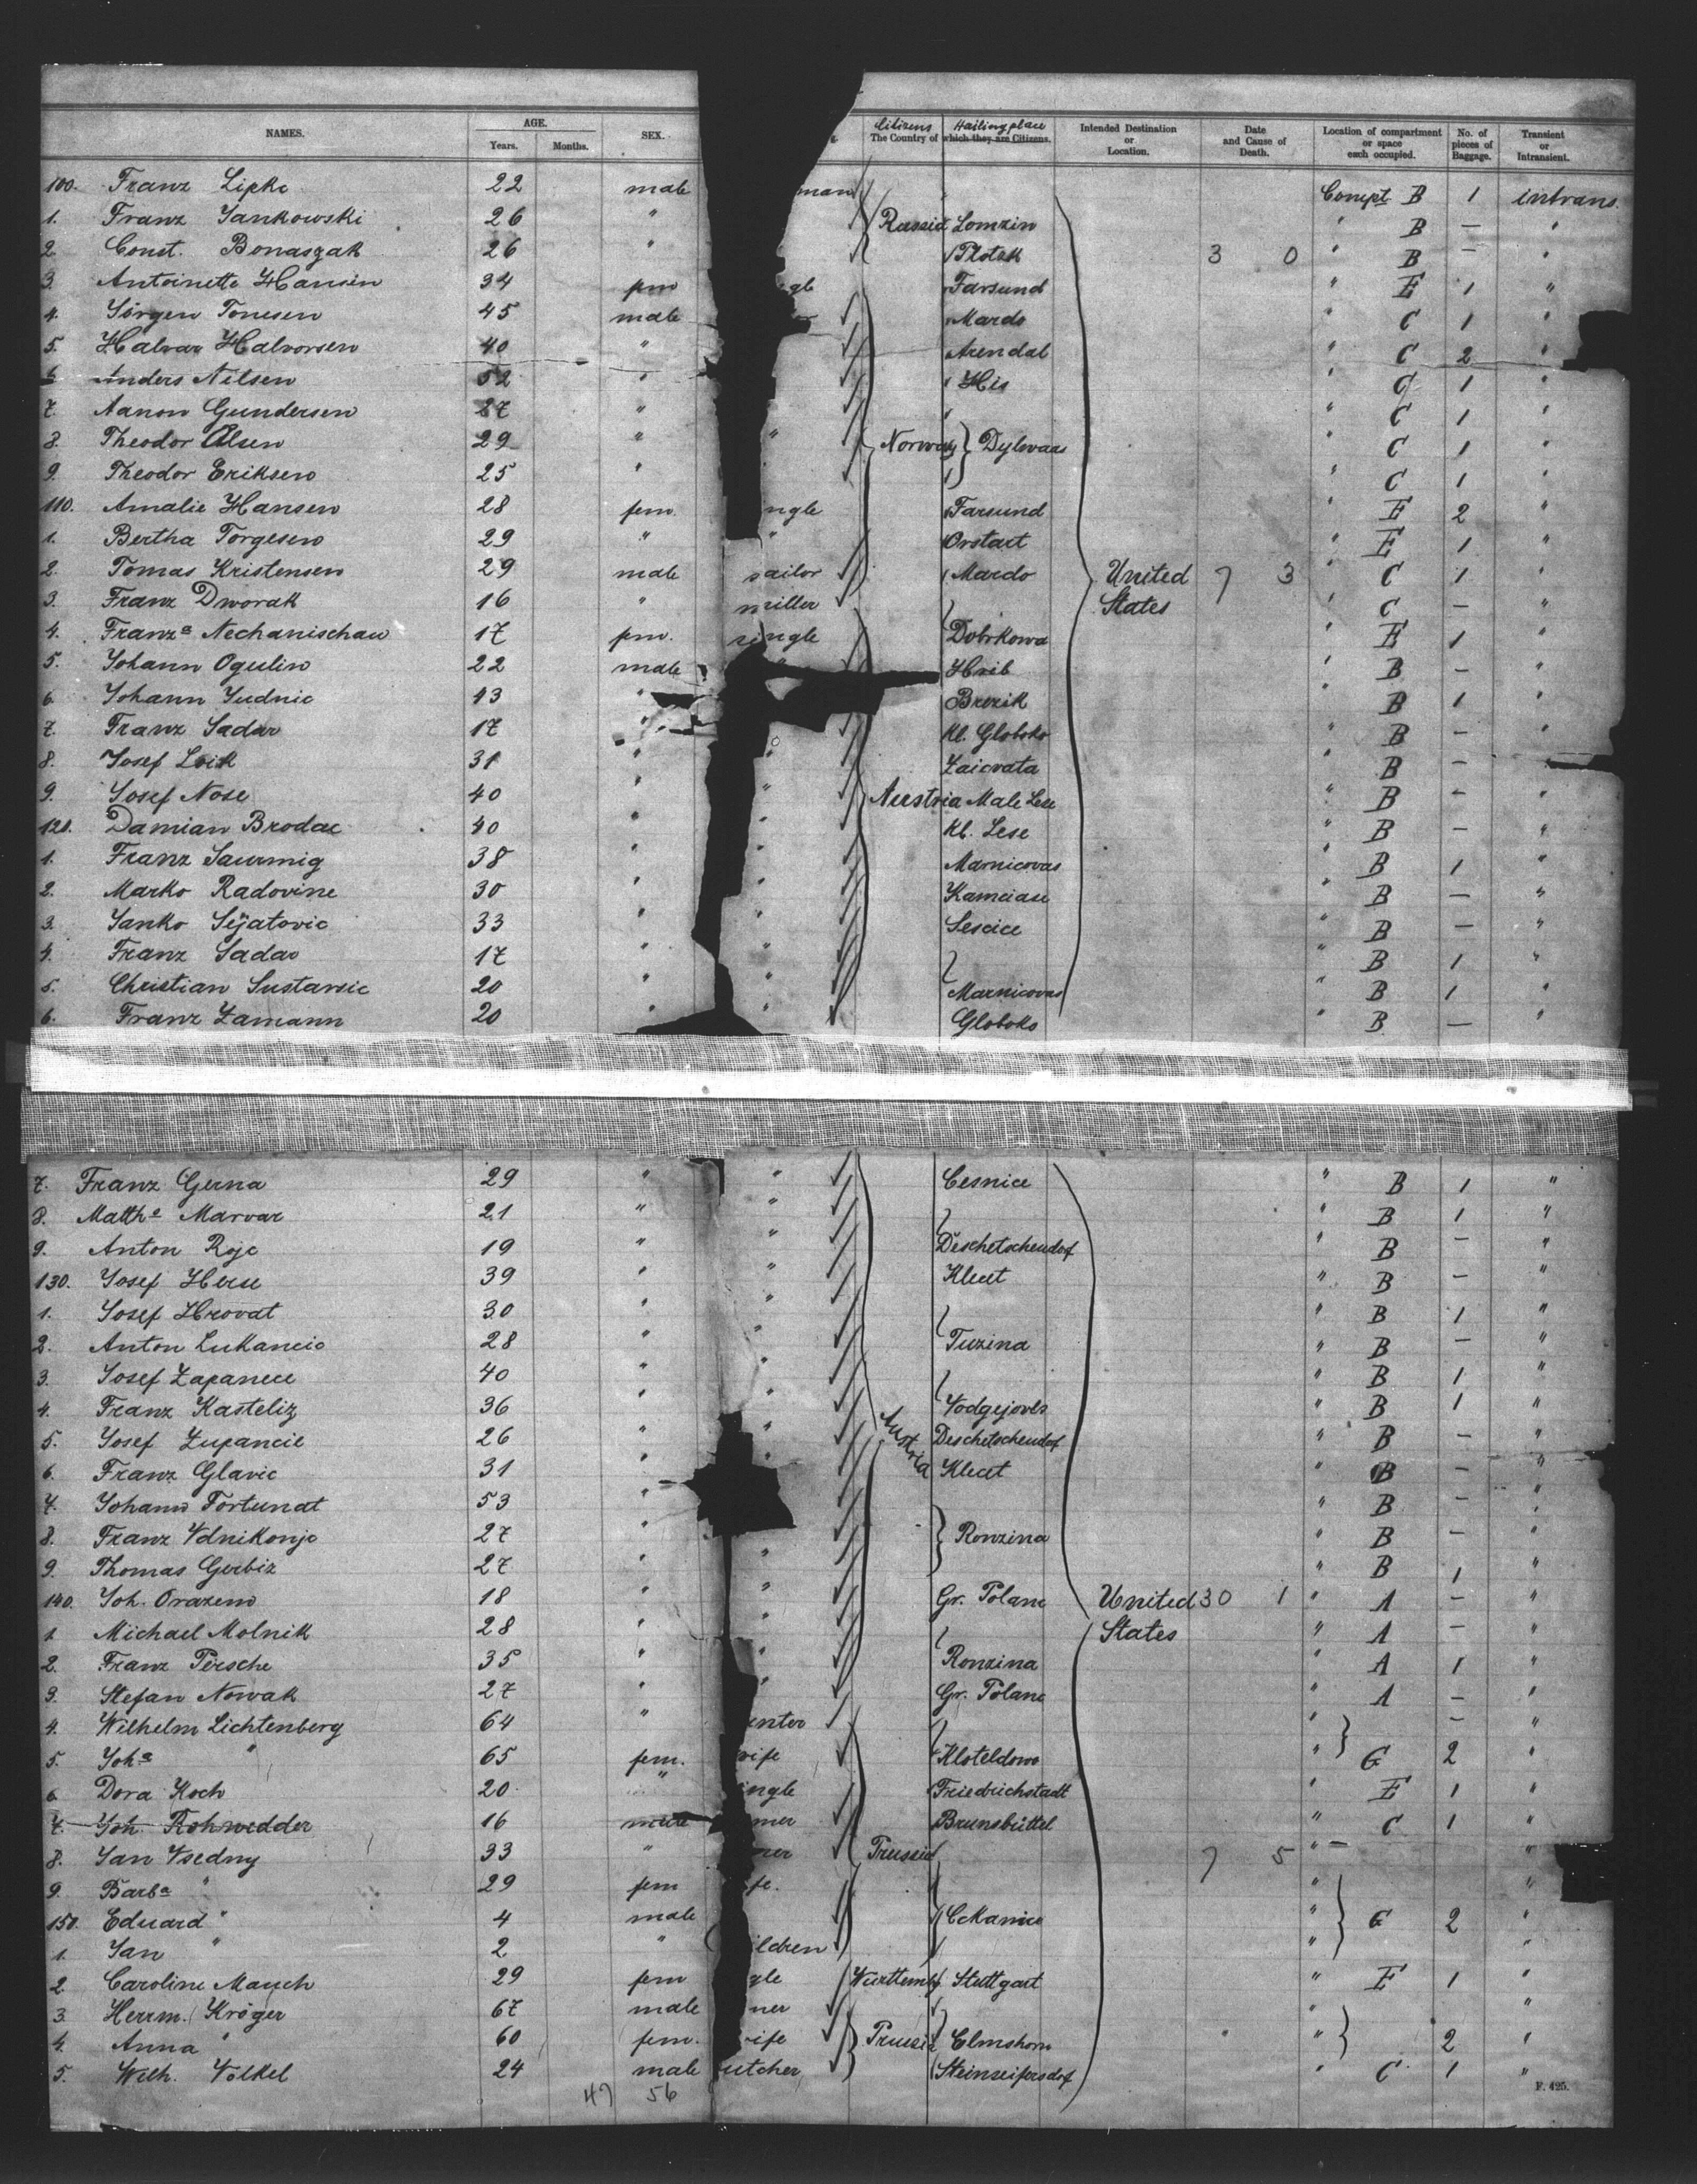 NAMES. AGE. Years. Months. SEX. Citizens The Country of Hailing place which they are Citizens. Intended Destination or Location. Date and Cause of Death. Location of compartment or space each occupied. No. of pieces of Baggage. Transient or Intransient.
100. Franz Lipke 22 male man Compt B 1 intrans.
1. Franz Jankowski 26 " Russia Lomzin " B — "
2. Const. Bonaszak 26 " Plotzk 3 0 " B — "
3. Antoinette Hansen 34 fem gle Farsund " E 1 "
4. Jörgen Tonesen 45 male Mardo " C 1 "
5. Halvar Halvorsen 40 " Arendal " C 2 "
6. Anders Nilsen 52 " His " C 1 "
7. Aanon Gundersen 27 " " C 1 "
8. Theodor Olsen 29 " " Norway Dybvaas " C 1 "
9. Theodor Eriksen 25 " " C 1 "
110. Amalie Hansen 28 fem. ngle Farsund " E 2 "
1. Bertha Torgesen 29 " " Orstart " E 1 "
2. Tomas Kristensen 29 male sailor Mardo United 7 3 " C 1 "
3. Franz Dworak 16 " miller States " C — "
4. Franz<sup>a</sup> Nechanischau 17 fem. single Dobrkowa " E 1 "
5. Johann Ogulin 22 male Hrib " B — "
6. Johann Judnic 43 " Brezik " B 1 "
7. Franz Sadar 17 " Kl. Globoko " B — "
8. Josef Loik 31 " " Zaicvata " B — "
9. Josef Nose 40 " " Austria Male Lese " B — "
120. Damian Brodac 40 " " Kl. Lese " B — "
1. Franz Saurmig 38 " " Marnicovas " B 1 "
2. Marko Radovine 30 " " Kamciase " B — "
3. Janko Sejatovic 33 " " Sescice " B — "
4. Franz Sadar 17 " " " B 1 "
5. Christian Sustarsic 20 " " Marnicovas " B 1 "
6. Franz Zamann 20 " " Globoko " B — "
7. Franz Gerna 29 " " Cesnice " B 1 "
8. Matth<sup>s</sup> Marvar 21 " " " B 1 "
9. Anton Roje 19 " " Deschetschendof " B — "
130. Josef Herse 39 " " Kleut " B — "
1. Josef Hrovat 30 " " " B 1 "
2. Anton Lukancic 28 " " Tuzina " B — "
3. Josef Zapanece 40 " " " B 1 "
4. Franz Kasteliz 36 " " Vodgejovls " B 1 "
5. Josef Zupancic 26 " " Austria Deschetschendof " B — "
6. Franz Glavic 31 " " Kleut " B — "
7. Johann Fortunat 53 " " B — "
8. Franz Vdnikonje 27 " Ronzina " B — "
9. Thomas Gerbiz 27 " " " B 1 "
140. Joh. Orazem 18 " " Gr. Polane United 30 1 " A — "
1. Michael Molnik 28 " " States " A — "
2. Franz Persche 35 " " Ronzina " A 1 "
3. Stefan Nowak 27 " " Gr. Polane " A — "
4. Wilhelm Lichtenberg 64 " enter " — "
5. Joh<sup>a</sup> " 65 fem. wife Kloteldom " G 2 "
6. Dora Koch 20 " ingle Friedrichstadt " E 1 "
7. Joh. Rohwedder 16 male mer Brunsbüttel " C 1 "
8. Jan Vsedny 33 " mer Prussia 7 5 " — "
9. Barb<sup>a</sup> " 29 fem fe. " "
150. Eduard " 4 male Cekanice " G 2 "
1. Jan " 2 " ildren " "
2. Caroline Mauch 29 fem gle Württembg. Stuttgart " E 1 "
3. Herrm. Kröger 67 male ner " "
4. Anna " 60 fem. ife Prussia Elmshorn " 2 "
5. Wilh. Völkel 24 male utcher Steinseifersdof " C 1 "
47 56
F. 425.